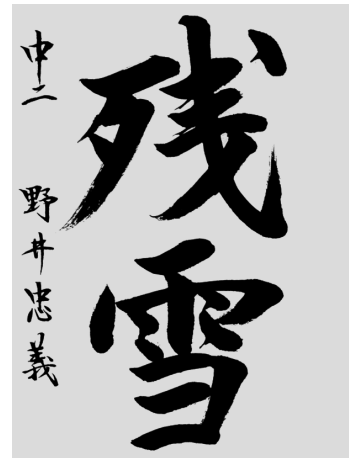 残雪
中二 野井忠義